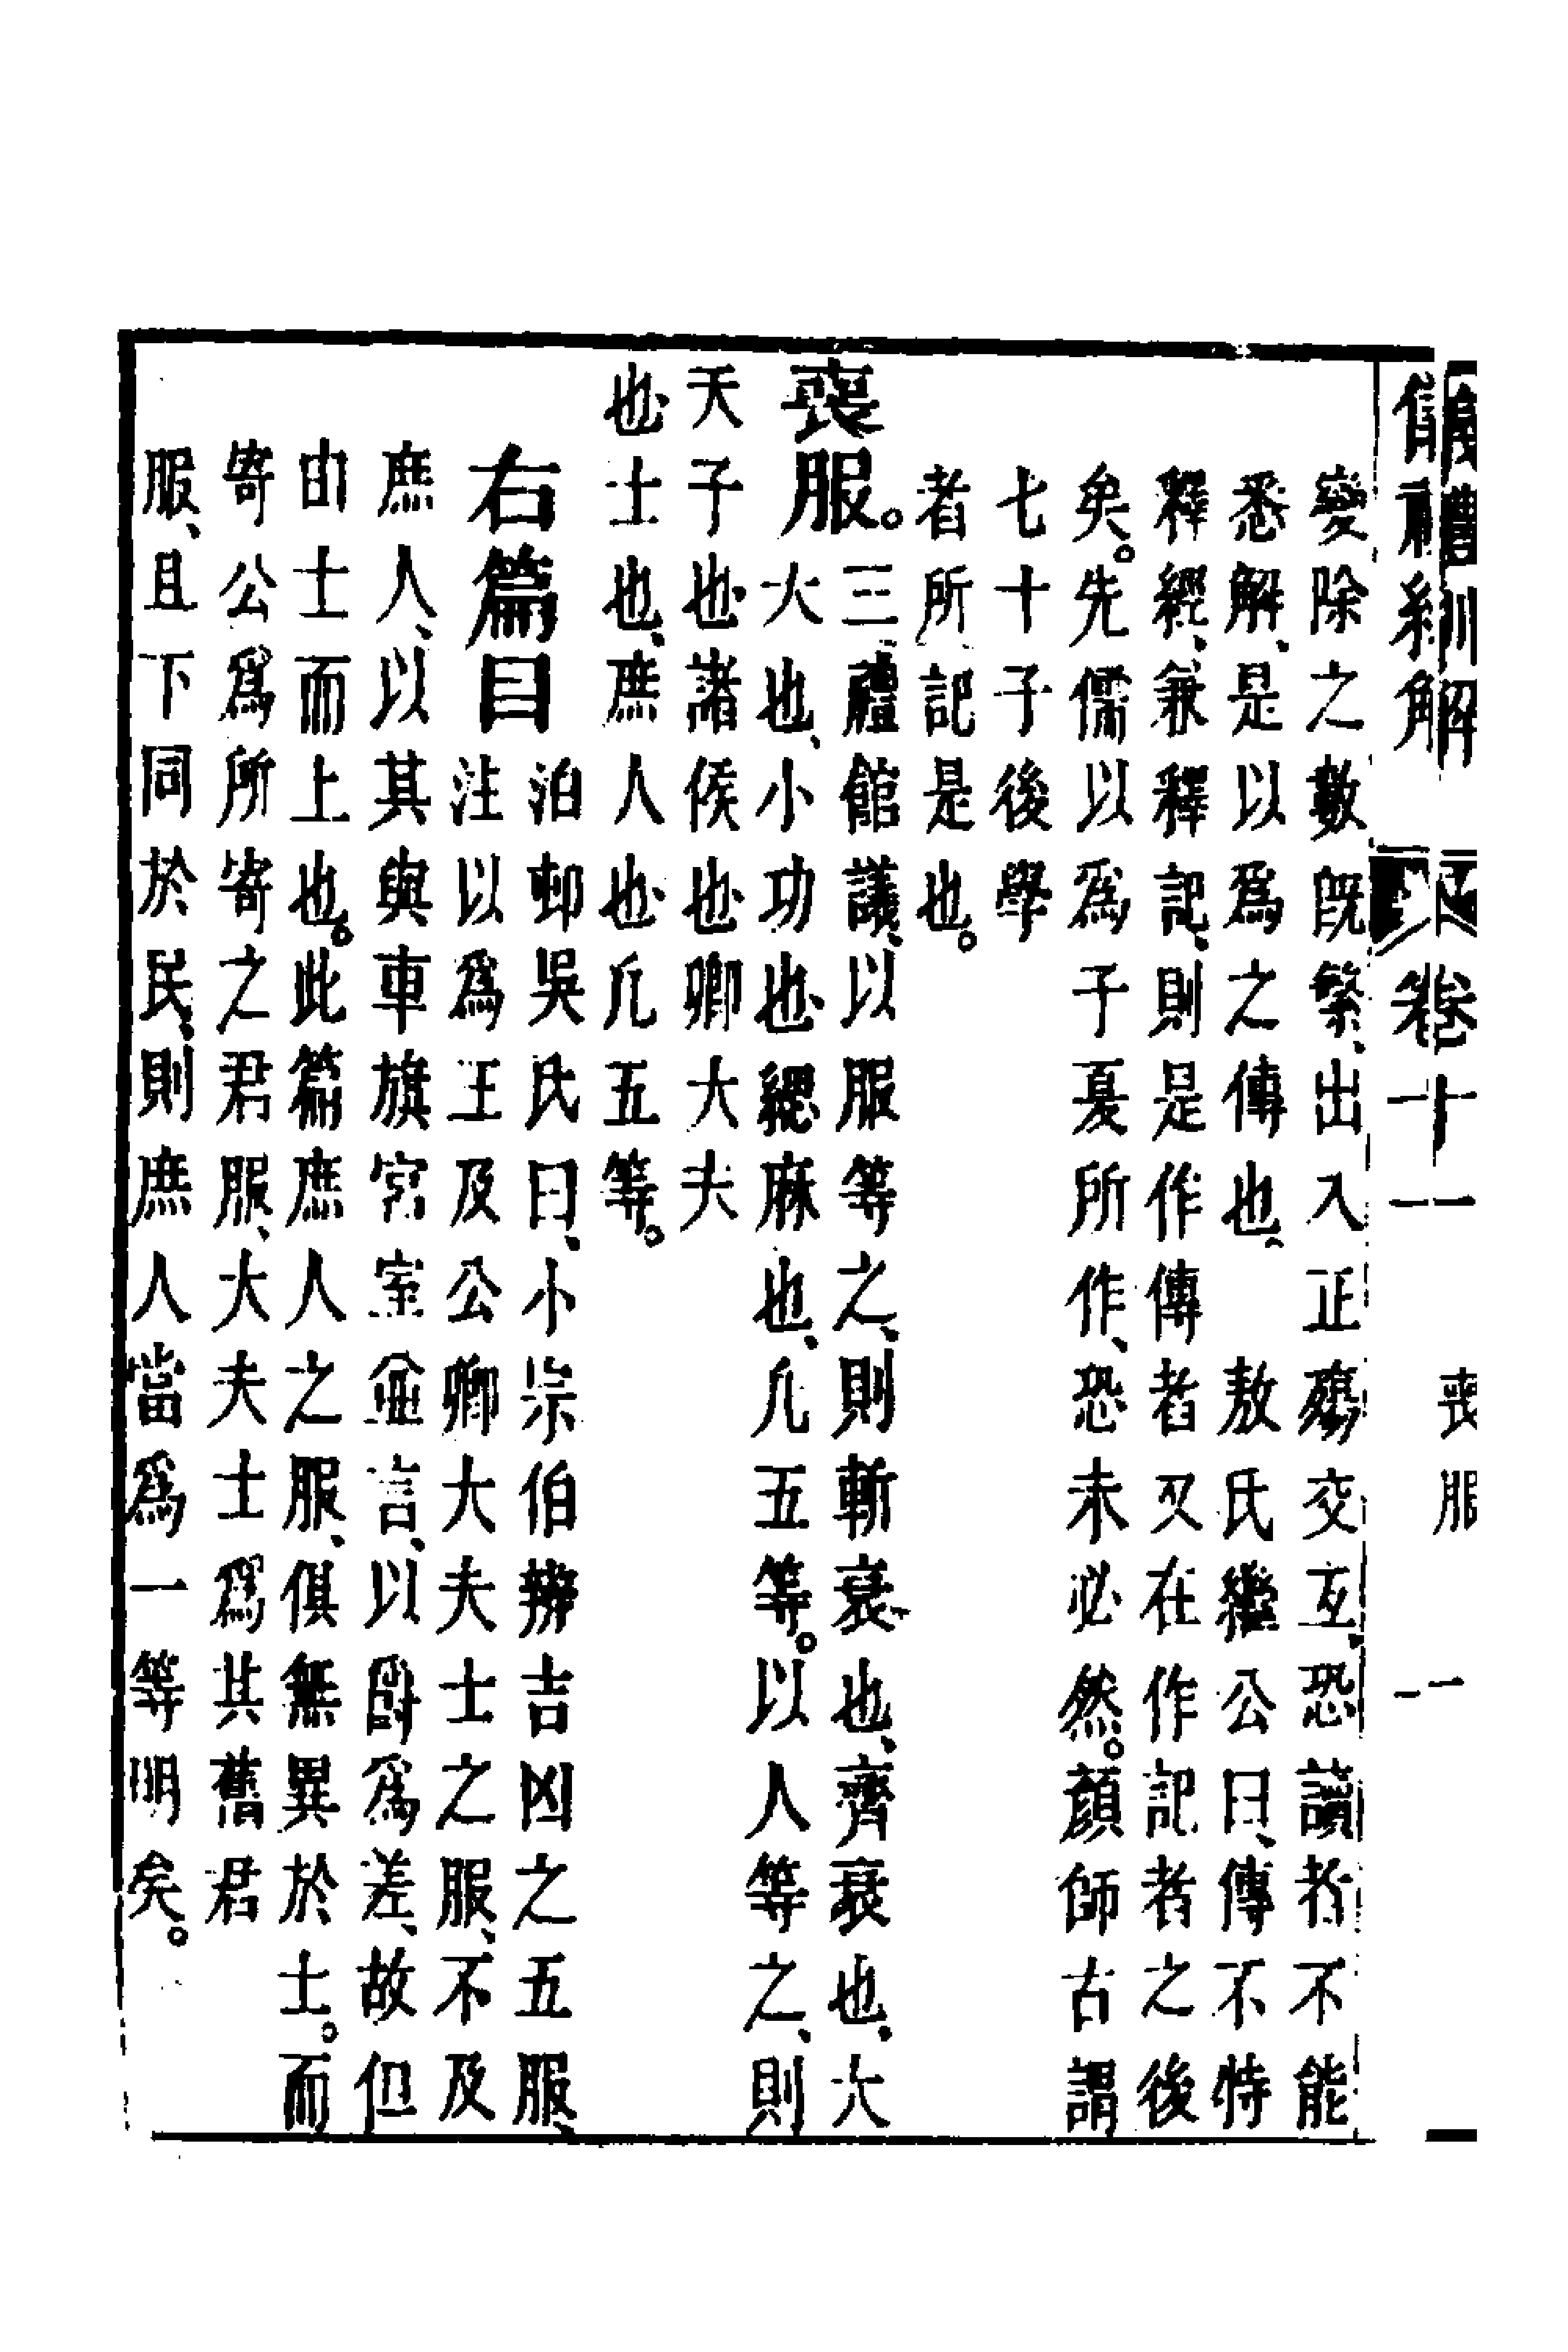 儀禮訓解 卷十一 喪服 一
變除之數既繁、出入正殤交互、恐讀者不能
悉解、是以爲之傳也、 敖氏繼公曰、傳不特
釋經、兼釋記、則是作傳者又在作記者之後
矣。先儒以爲子夏所作、恐未必然。顏師古謂
七十子後學
者所記是也。
喪服。三禮館議、以服等之、則斬衰也、齊衰也、大
大也、小功也、緦麻也、凡五等。以人等之、則
天子也、諸侯也、卿大夫
也、士也、庶人也、凡五等。
右篇目 泊邨吳氏曰、小宗伯辨吉凶之五服、
注以爲王及公卿大夫士之服、不及
庶人、以其與車旗宮室並言、以爵爲差、故但
由士而上也。此篇庶人之服、俱無異於士。而
寄公爲所寄之君服、大夫士爲其舊君
服、且下同於民、則庶人當爲一等明矣。